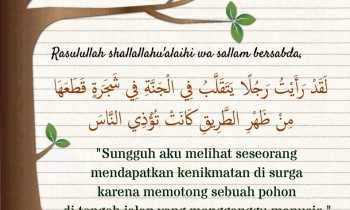 Rasulullah shallallahu'alaihi wa sallam bersabda,
لَقَدْ رَأَيْتُ رَجُلًا يَتَقَلَّبُ فِي الْجَنَّةِ فِي شَجَرَةٍ قَطَعَهَا
مِنْ ظَهْرِ الطَّرِيقِ كَانَتْ تُؤْذِي النَّاسَ
"Sungguh aku melihat seseorang
mendapatkan kenikmatan di surga
karena memotong sebuah pohon
di tengah jalan yang mengganggu manusia."